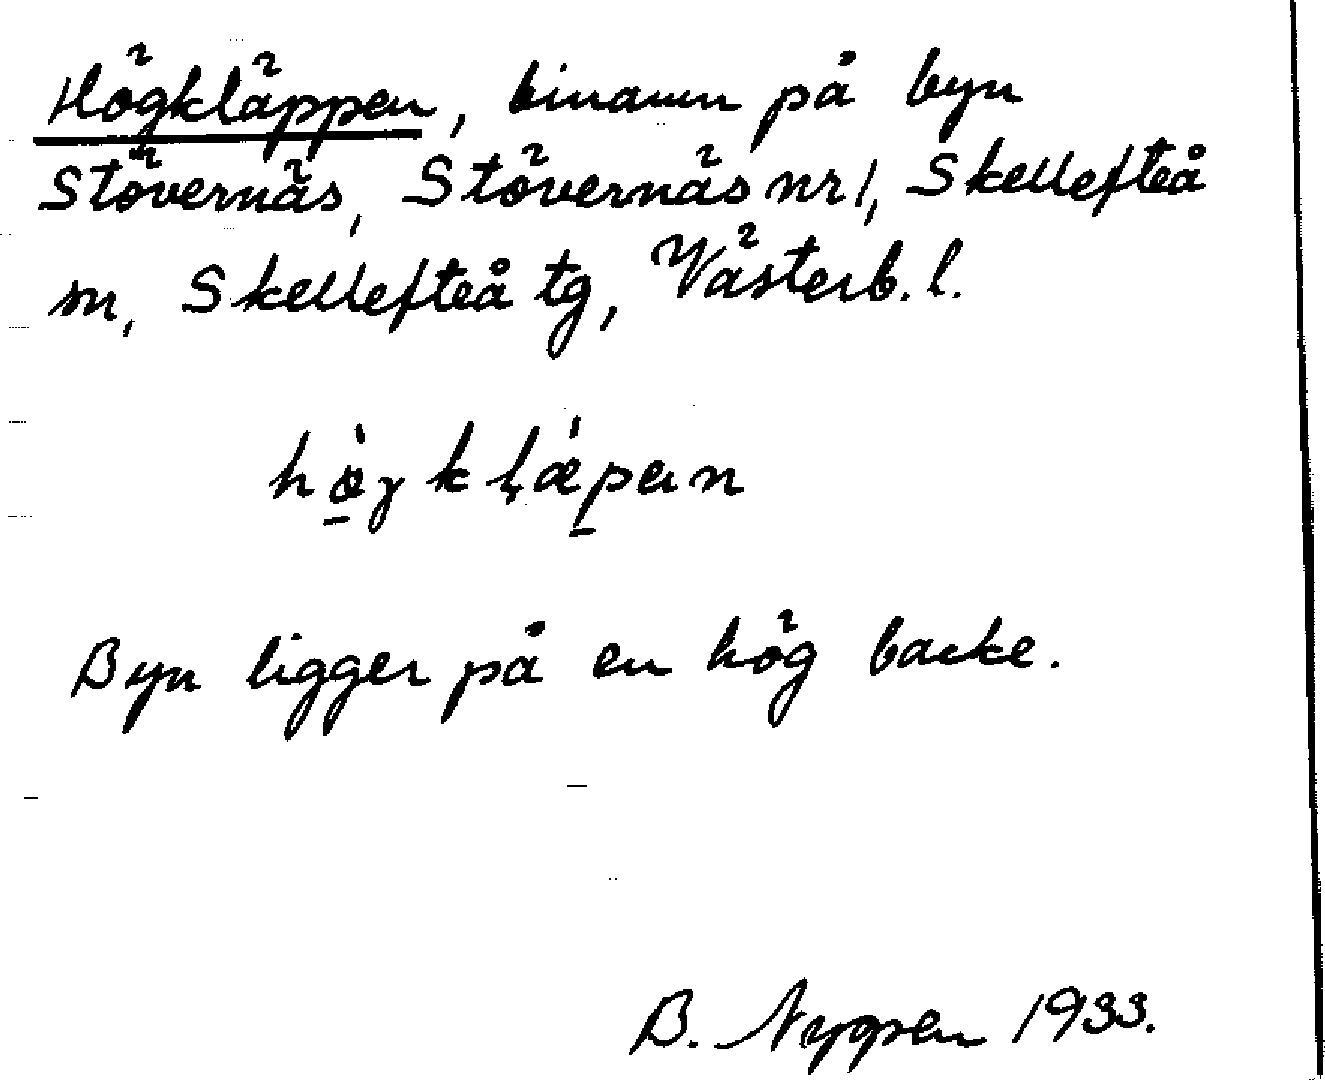 Högkläppen, binamn på byn
Stövernäs, Stövernäs nr 1, Skellefteå
sn, Skellefteå tg, Västerb. l.
Byn ligger på en hög backe.
B. 1933.